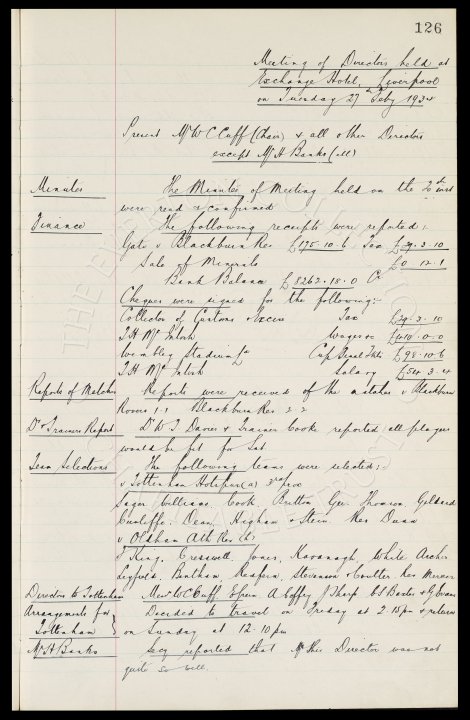 126
Meeting of Directors held at
Exchange Hotel, Liverpool
on Tuesday 27th Feby 1934
Present Mr W C Cuff (Chair) & all other Directors
except Mr A Banks (ill)
Minutes The Minutes of Meeting held on the 20th inst
were read & confirmed
Finance The following receipts were reported:
Gate v Blackburn Res £175-10-6 Tax £29-3-10
Sale of Minerals £0-12-1
Bank Balance £8262-18-0 Cr
Cheques were signed for the following:-
Collector of Customs & Excise Tax £29-3-10
T H McIntosh Wages &c £410-0-0
Wembley Stadium Ld Cup Final Tkts £98-10-6
T H McIntosh Salary £54-3-4
Reports of Matches Reports were received of the matches v Blackburn
Rovers 1-1 Blackburn Res 2-2
Dr & Trainers Report Dr W J Davies & Trainer Cooke reported all players
would be fit for Sat
Team Selections The following teams were selected:-
v Tottenham Hotspur (a) 3rd prox
Sagar Williams Cook Britton Gee Thomson Geldard
Cunliffe, Dean, Higham & Stein. Res Dunn
v Oldham Ath Res (h)
King, Cresswell, Jones, Kavanagh, White Archer
Leyfield, Bentham, Redfern, Stevenson & Coulter. Res Mercer
Directors to Tottenham Messrs W C Cuff Green A Coffey J Sharp C S Baxter & G Evans
Arrangements for Decided to travel on Friday at 2-15pm & return
Tottenham on Sunday at 12-10pm
Mr A Banks Secy reported that this Director was not
quite so well.